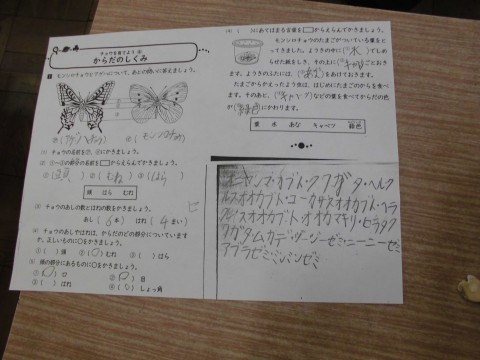 チョウを育てよう④
からだのしくみ
1 モンシロチョウとアゲハについて、あとの問いに答えましょう。
㋐(アゲハチョウ) ㋑(モンシロチョウ)
(1) チョウの名前を㋐、㋑にかきましょう。
(2) ①～③の部分の名前を□からえらんでかきましょう。
①(頭) ②(むね) ③(はら)
頭 はら むね
(3) チョウのあしの数とはねの数をかきましょう。
あし(6本) はね(4まい)
(4) チョウのあしやはねは、からだのどの部分についていますか。正しいものに○をかきましょう。
①( )頭 ②(○)むね ③( )はら
(5) 頭の部分にあるものに○をかきましょう。
①(○)口 ②(○)目
③( )はね ④(○)しょっ角
(6) ( )にあてはまる言葉を□からえらんでかきましょう。
モンシロチョウのたまごがついている葉をとってきました。ようきの中に(水)でしめらせた紙をしき、その上に
ようきのふたには、(あな)をあけておきます。
たまごからかえったよう虫は、はじめにたまごのからを食べます。そのあと、(キャベツ)などの葉を食べてからだの色が(緑色)にかわります。
葉 水 あな キャベツ 緑色
オオカブト・コーカサスオオカブト・ヘラ
クレスオオカブト・オオカマキリ・ヒラタク
ワガタムカデ・ツージーゼミ・ニーニーゼミ
アブラゼミ・ミンミンゼミ